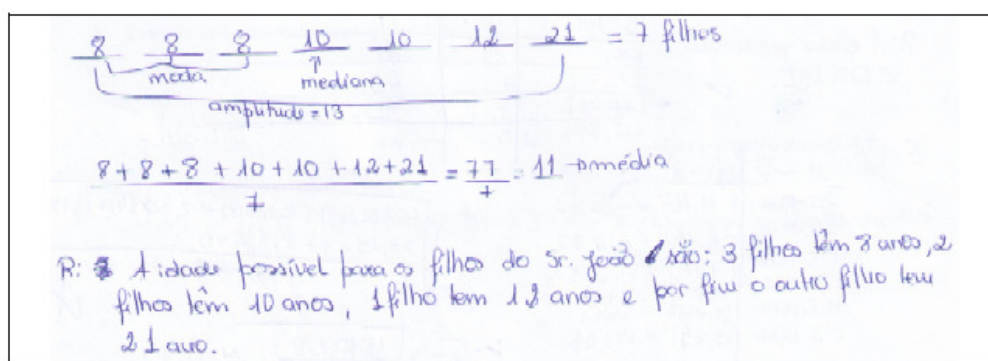 8 8 8 10 10 12 21 = 7 filhos
moda mediana
amplitude = 13
8 + 8 + 8 + 10 + 10 + 12 + 21 = 77 = 11 → média
7 7
R: A idade possível para os filhos do Sr. João são: 3 filhos têm 8 anos, 2
filhos têm 10 anos, 1 filho tem 12 anos e por fim o outro filho tem
21 ano.